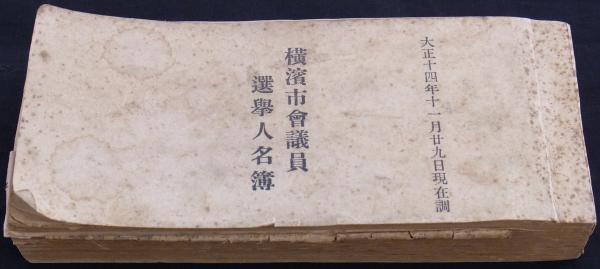 大正十四年十一月廿九日現在調
橫濱市會議員
選擧人名簿